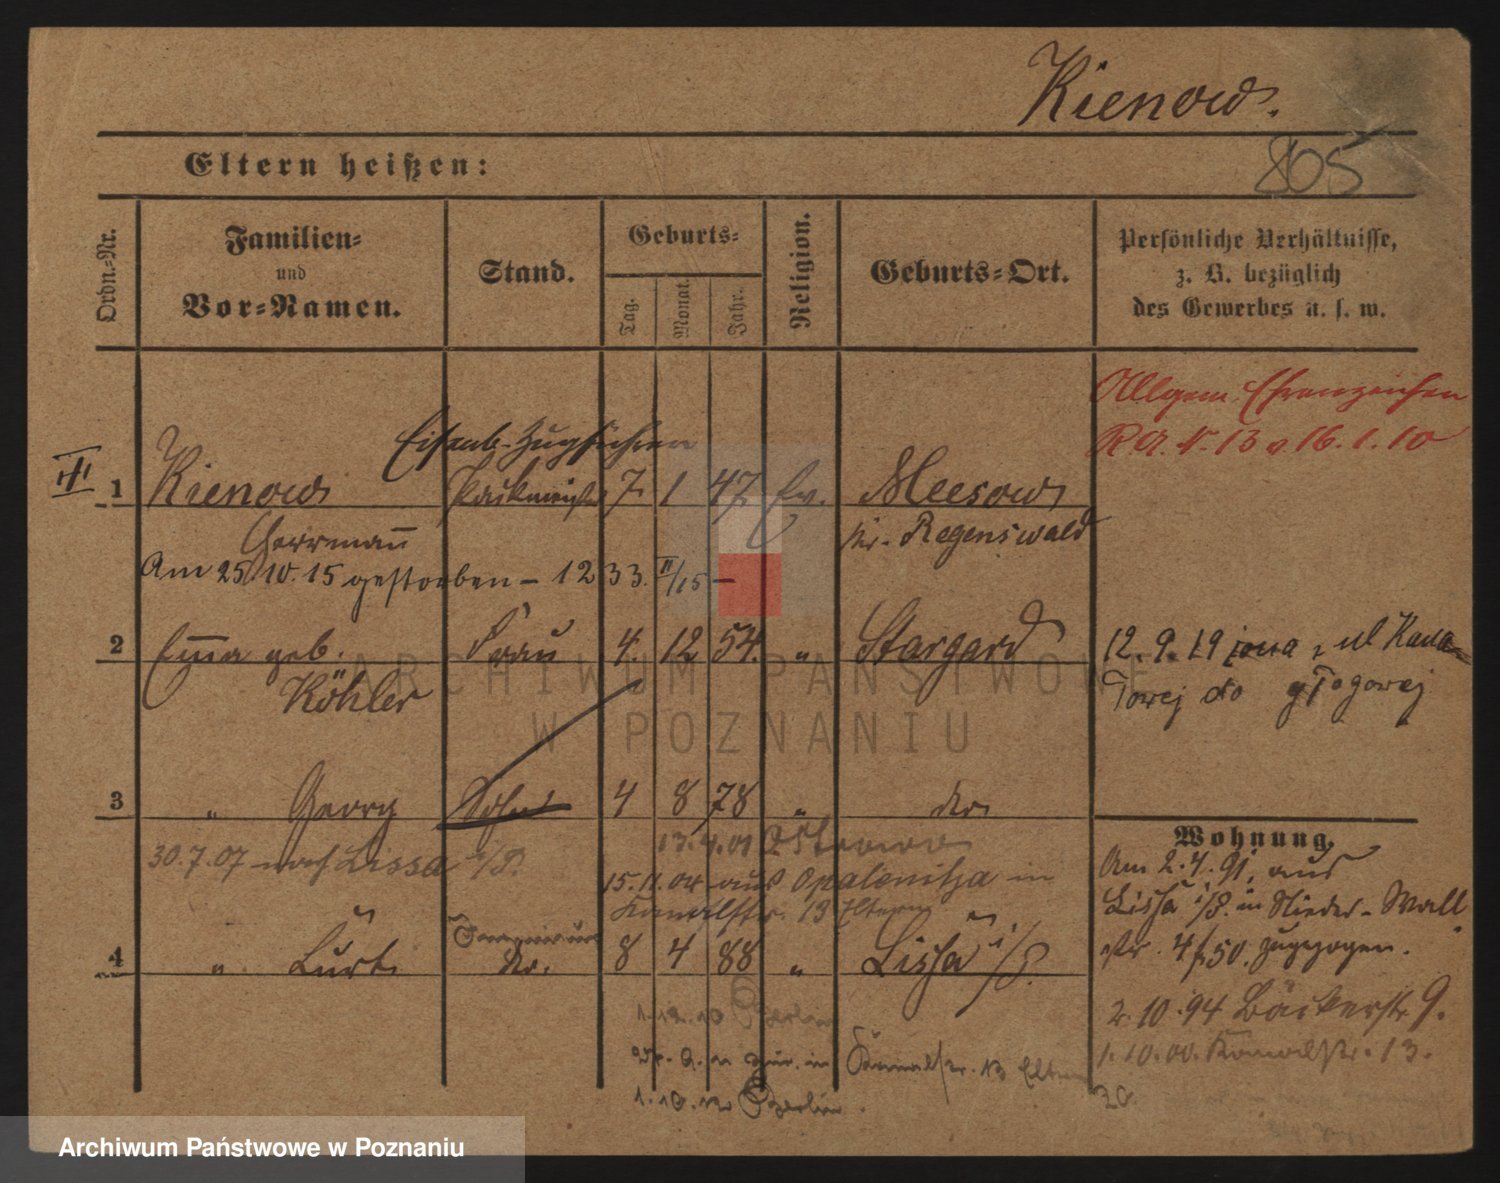 Kienow.
805
Eltern heißen:
Ordn.-Nr.
Familien-
und
Vor-Namen.
Stand.
Geburts-
Tag.
Monat.
Jahr.
Religion.
Geburts-Ort.
Persönliche Verhältnisse,
z. B. bezüglich
des Gewerbes u. s. w.
Allgem. Ehrenzeichen
R.A. N. 13 v 16.1.10
Eisenb. Zugführer
III
1 Kienow Packmeister 7. 1 47 Ev. Meesow
Herrmann Kr. Regenswald
Am 25.10.15 gestorben – 1233. II/15 –
2 Emma geb. Frau 4. 12 54. " Stargard
Köhler
12. 9. 19 z ul Kana-
lowej do głogowej
3 " Georg Sohn 4 8 78 " do
30.7.07 nach Lissa i/P.
13.4.01 Ostrowo
15.11.04 aus Opalenitza in
Kanalstr. 13 Eltern
4 " Curt do. 8 4 88 " Lissa i/P.
1.10.10 Berlin
zur. in Kanalstr. 13 Eltern
1.10.12 Berlin.
Wohnung.
Am 2.4.91, aus
Lissa i/P. in Nieder-Wall
str. 4/50. zugezogen.
2.10.94 Bäckerstr 9.
1.10.00. Kanalstr. 13.
ARCHIWUM PAŃSTWOWE
W POZNANIU
Archiwum Państwowe w Poznaniu